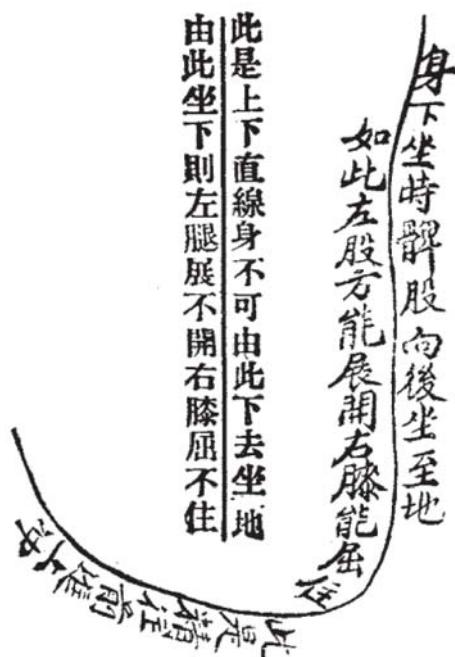 身下坐時髀股向後坐至地
如此左股方能展開右膝能屈住
此是上下直線身不可由此下去坐地
由此坐下則左腿展不開右膝屈不住
此是往前進